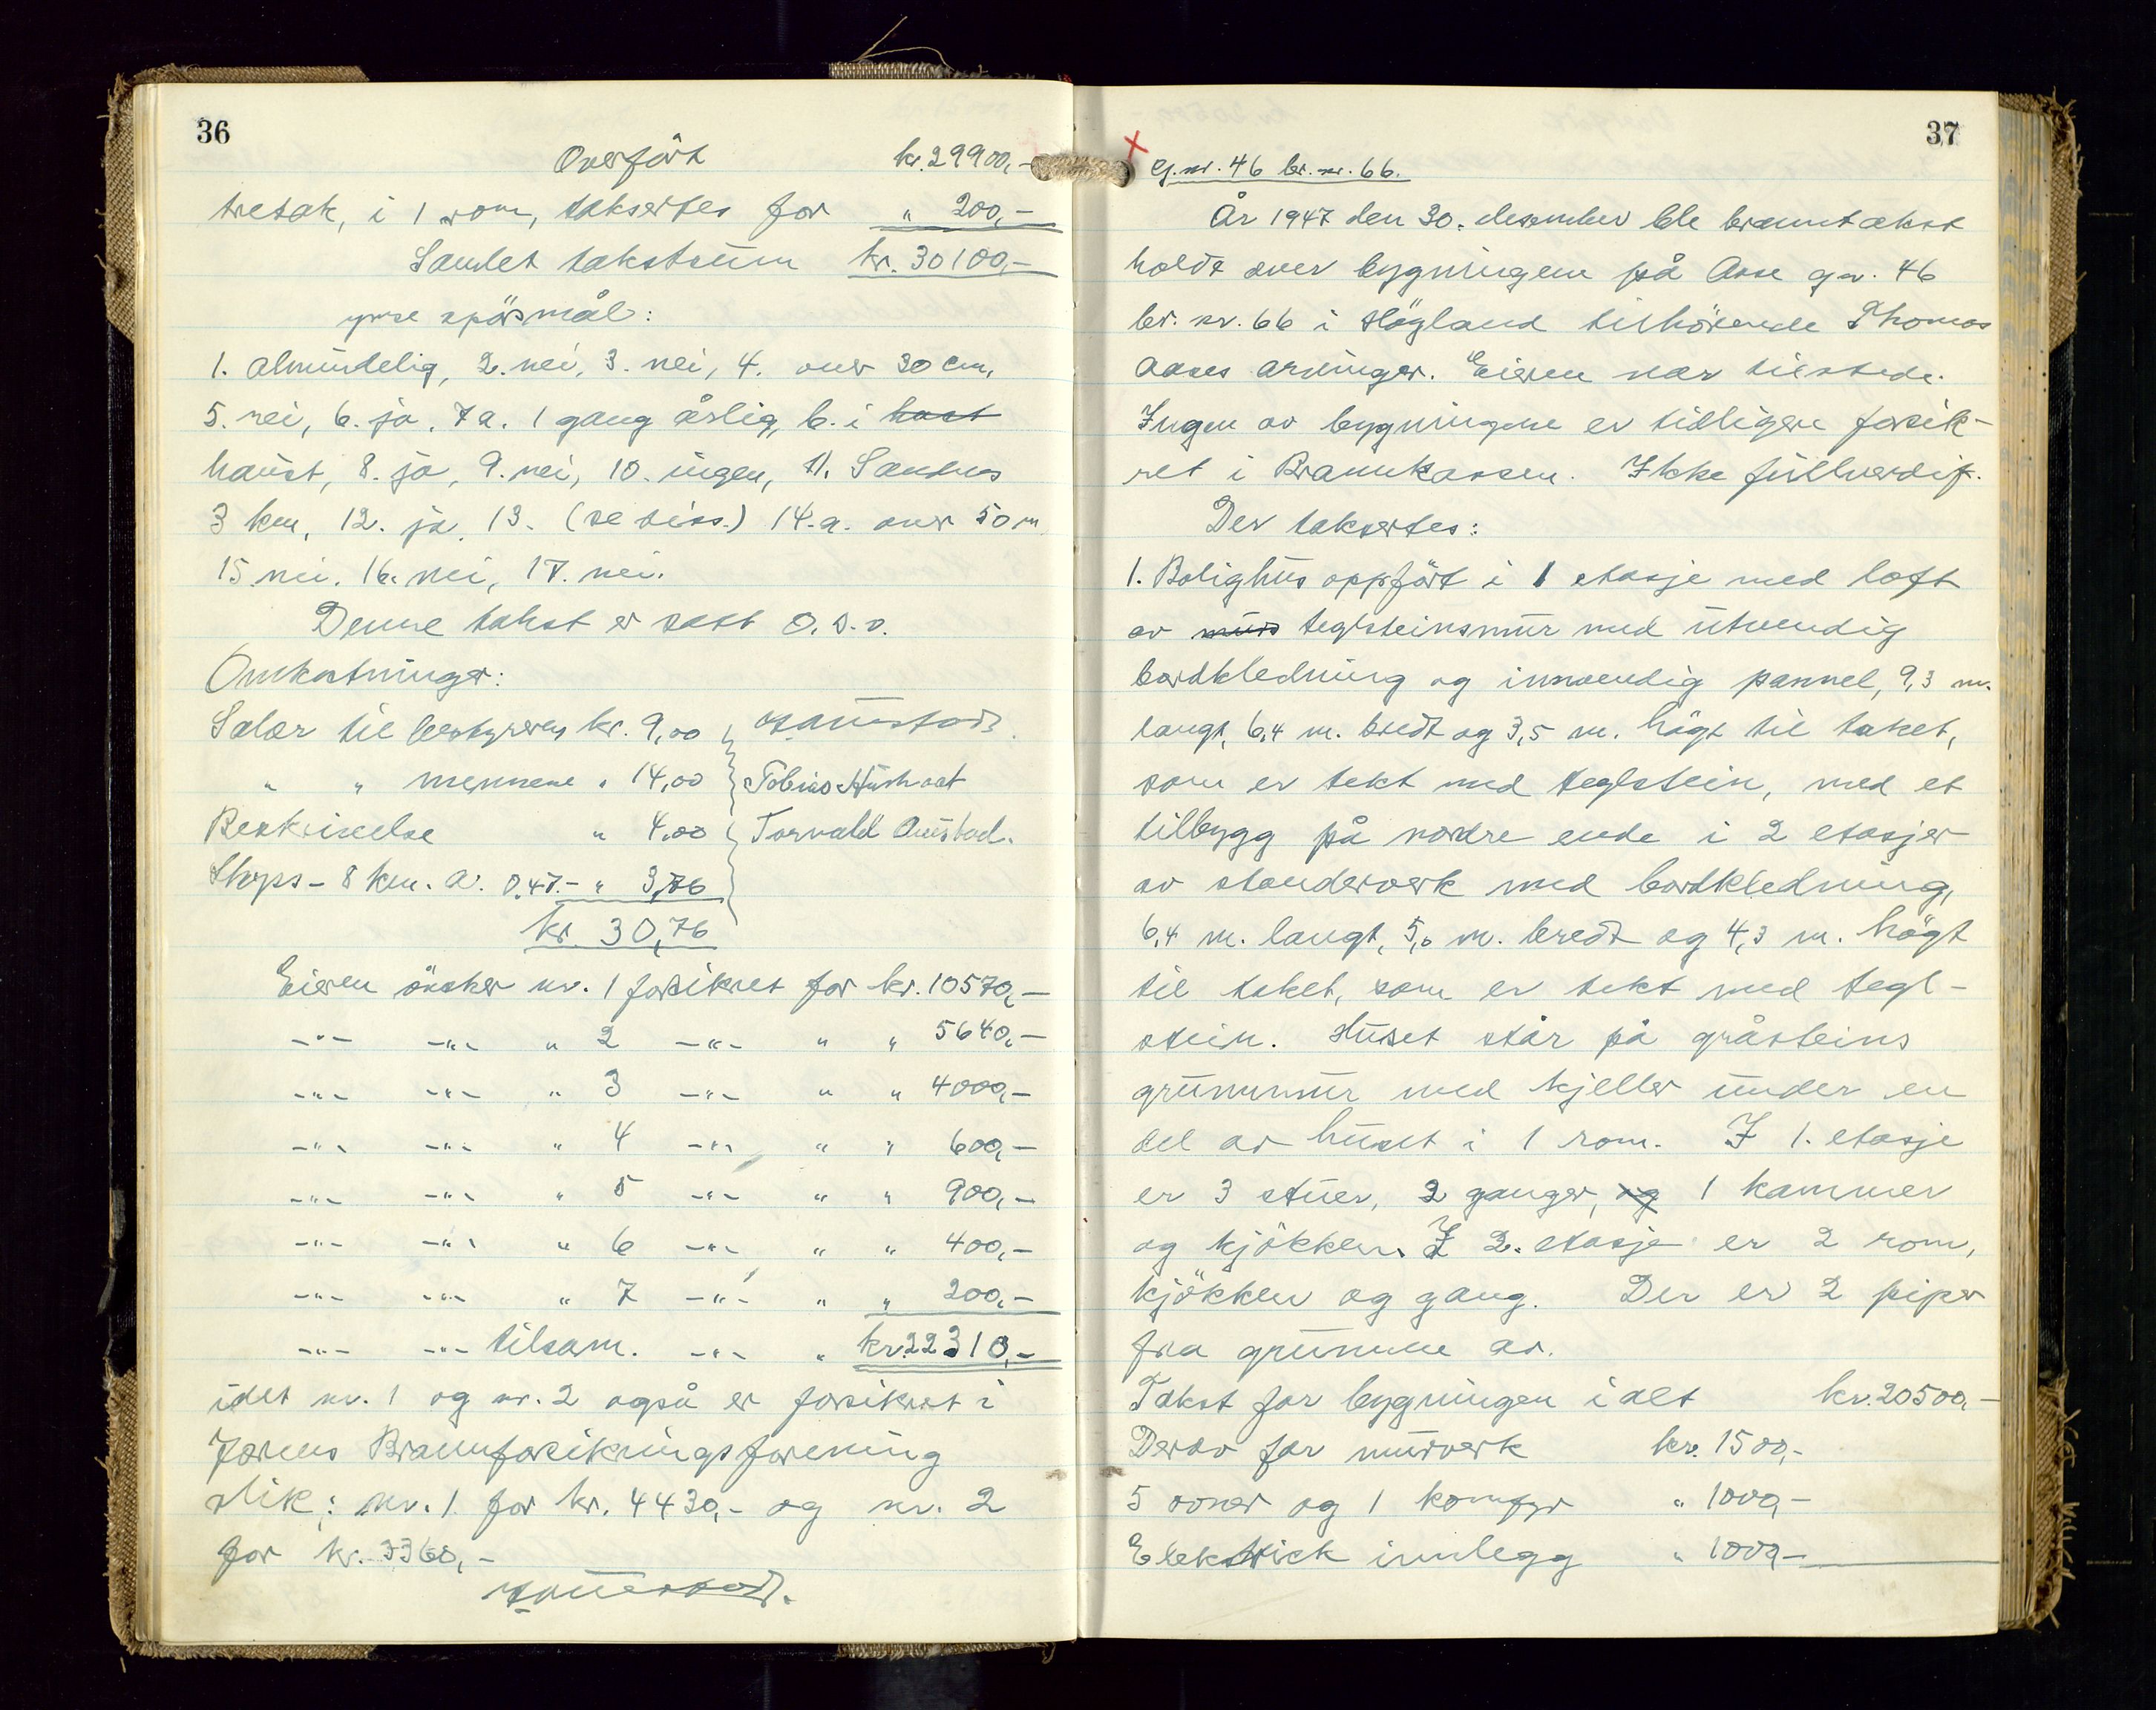 36
Overfört kr. 29900,-
tretak, i 1 rom, taksertes for " 200,-
Samlet takstsum kr. 30100,-
ymse spörsmål:
1. Almindelig, 2. nei, 3. nei, 4. over 30 cm,
5. nei, 6. ja, 7 a. 1 gang årlig, b. i host
haust, 8. ja, 9. nei, 10. ingen, 11. Sandnes
3 km, 12. ja, 13. (se diss.) 14.a. over 50 m
15 nei. 16. nei, 17. nei.
Denne takst er satt o.s.v.
Omkostninger:
Salær til bestyreren kr. 9,00
" " mennene " 14,00 Tobias
Beskrivelse " 4,00 Torvald Austad.
Skyss - 8 km. a. 0,47.- " 3,76
kr. 30,76
Eieren önsker nr. 1 forsikret for kr. 10570,-
-"- -"- " 2 -"- " " 5640,-
-"- -"- " 3 -"- " " 4000,-
-"- -"- " 4 -"- " " 600,-
-"- -"- " 5 -"- " " 900,-
-"- -"- " 6 -"- " " 400,-
-"- -"- " 7 -"- " " 200,-
-"- -"- tilsam. -"- " kr. 22310,-
idet nr. 1 og nr. 2 også er forsikret i
Jærens Brannforsikringsforening
slik: nr. 1 for kr. 4430,- og nr. 2
for kr. 3360,-
37
G.nr. 46 br. nr. 66.
År 1947 den 30. desember ble branntakst
holdt over bygningene på Ase gnr. 46
br. nr. 66 i Högland tilhörende Thomas
Aases arvinger. Eieren var tilstede.
Ingen av bygningene er tidligere forsik-
ret i Brannkassen. Ikke fullverdif.
Der taksertes:
1. Bolighus oppfört i 1 etasje med loft
av murs teglsteinsmur med utvendig
bordkledning og innvendig pannel, 9,3 m.
langt, 6,4 m. bredt og 3,5 m. högt til taket,
som er tekt med teglstein, med et
tilbygg på nordre ende i 2 etasjer
av stenderverk med bordkledning,
6,4 m. langt, 5,0 m. bredt og 4,3 m. högt
til taket, som er tekt med tegl-
stein. Huset står på gråsteins
grunnmur med kjeller under en
del av huset i 1 rom. I 1. etasje
er 3 stuer, 2 ganger, og 1 kammer
og kjökken. I 2. etasje er 2 rom,
kjökken og gang. Der er 2 piper
fra grunnen av.
Takst for bygningen ialt kr. 20500,-
Derav for murverk kr. 1500,-
5 ovner og 1 komfyr " 1000,-
Elektrisk innlegg " 1000,-